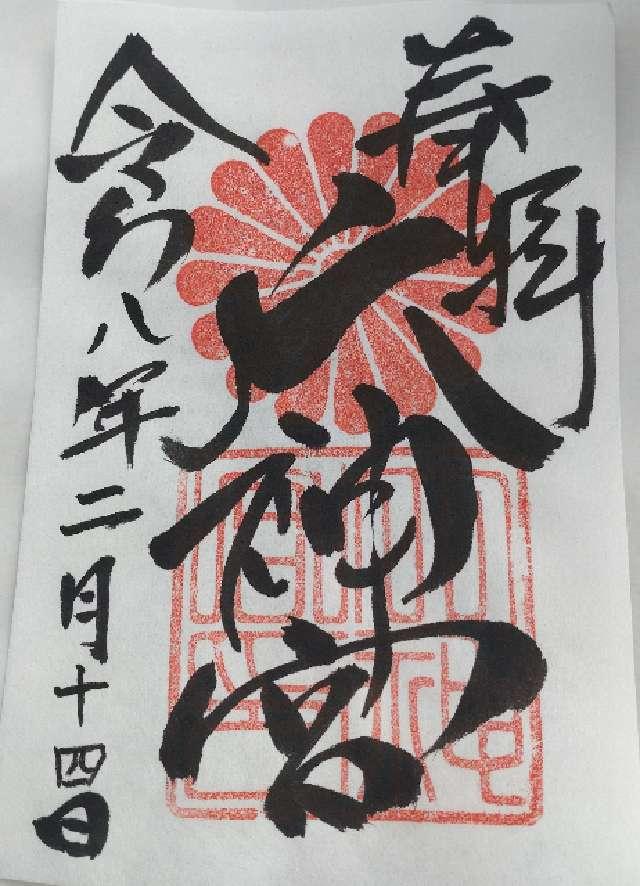 奉拝
六神宮
令和八年二月十四日